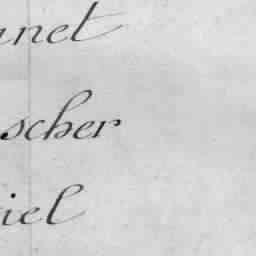 net
scher
iel